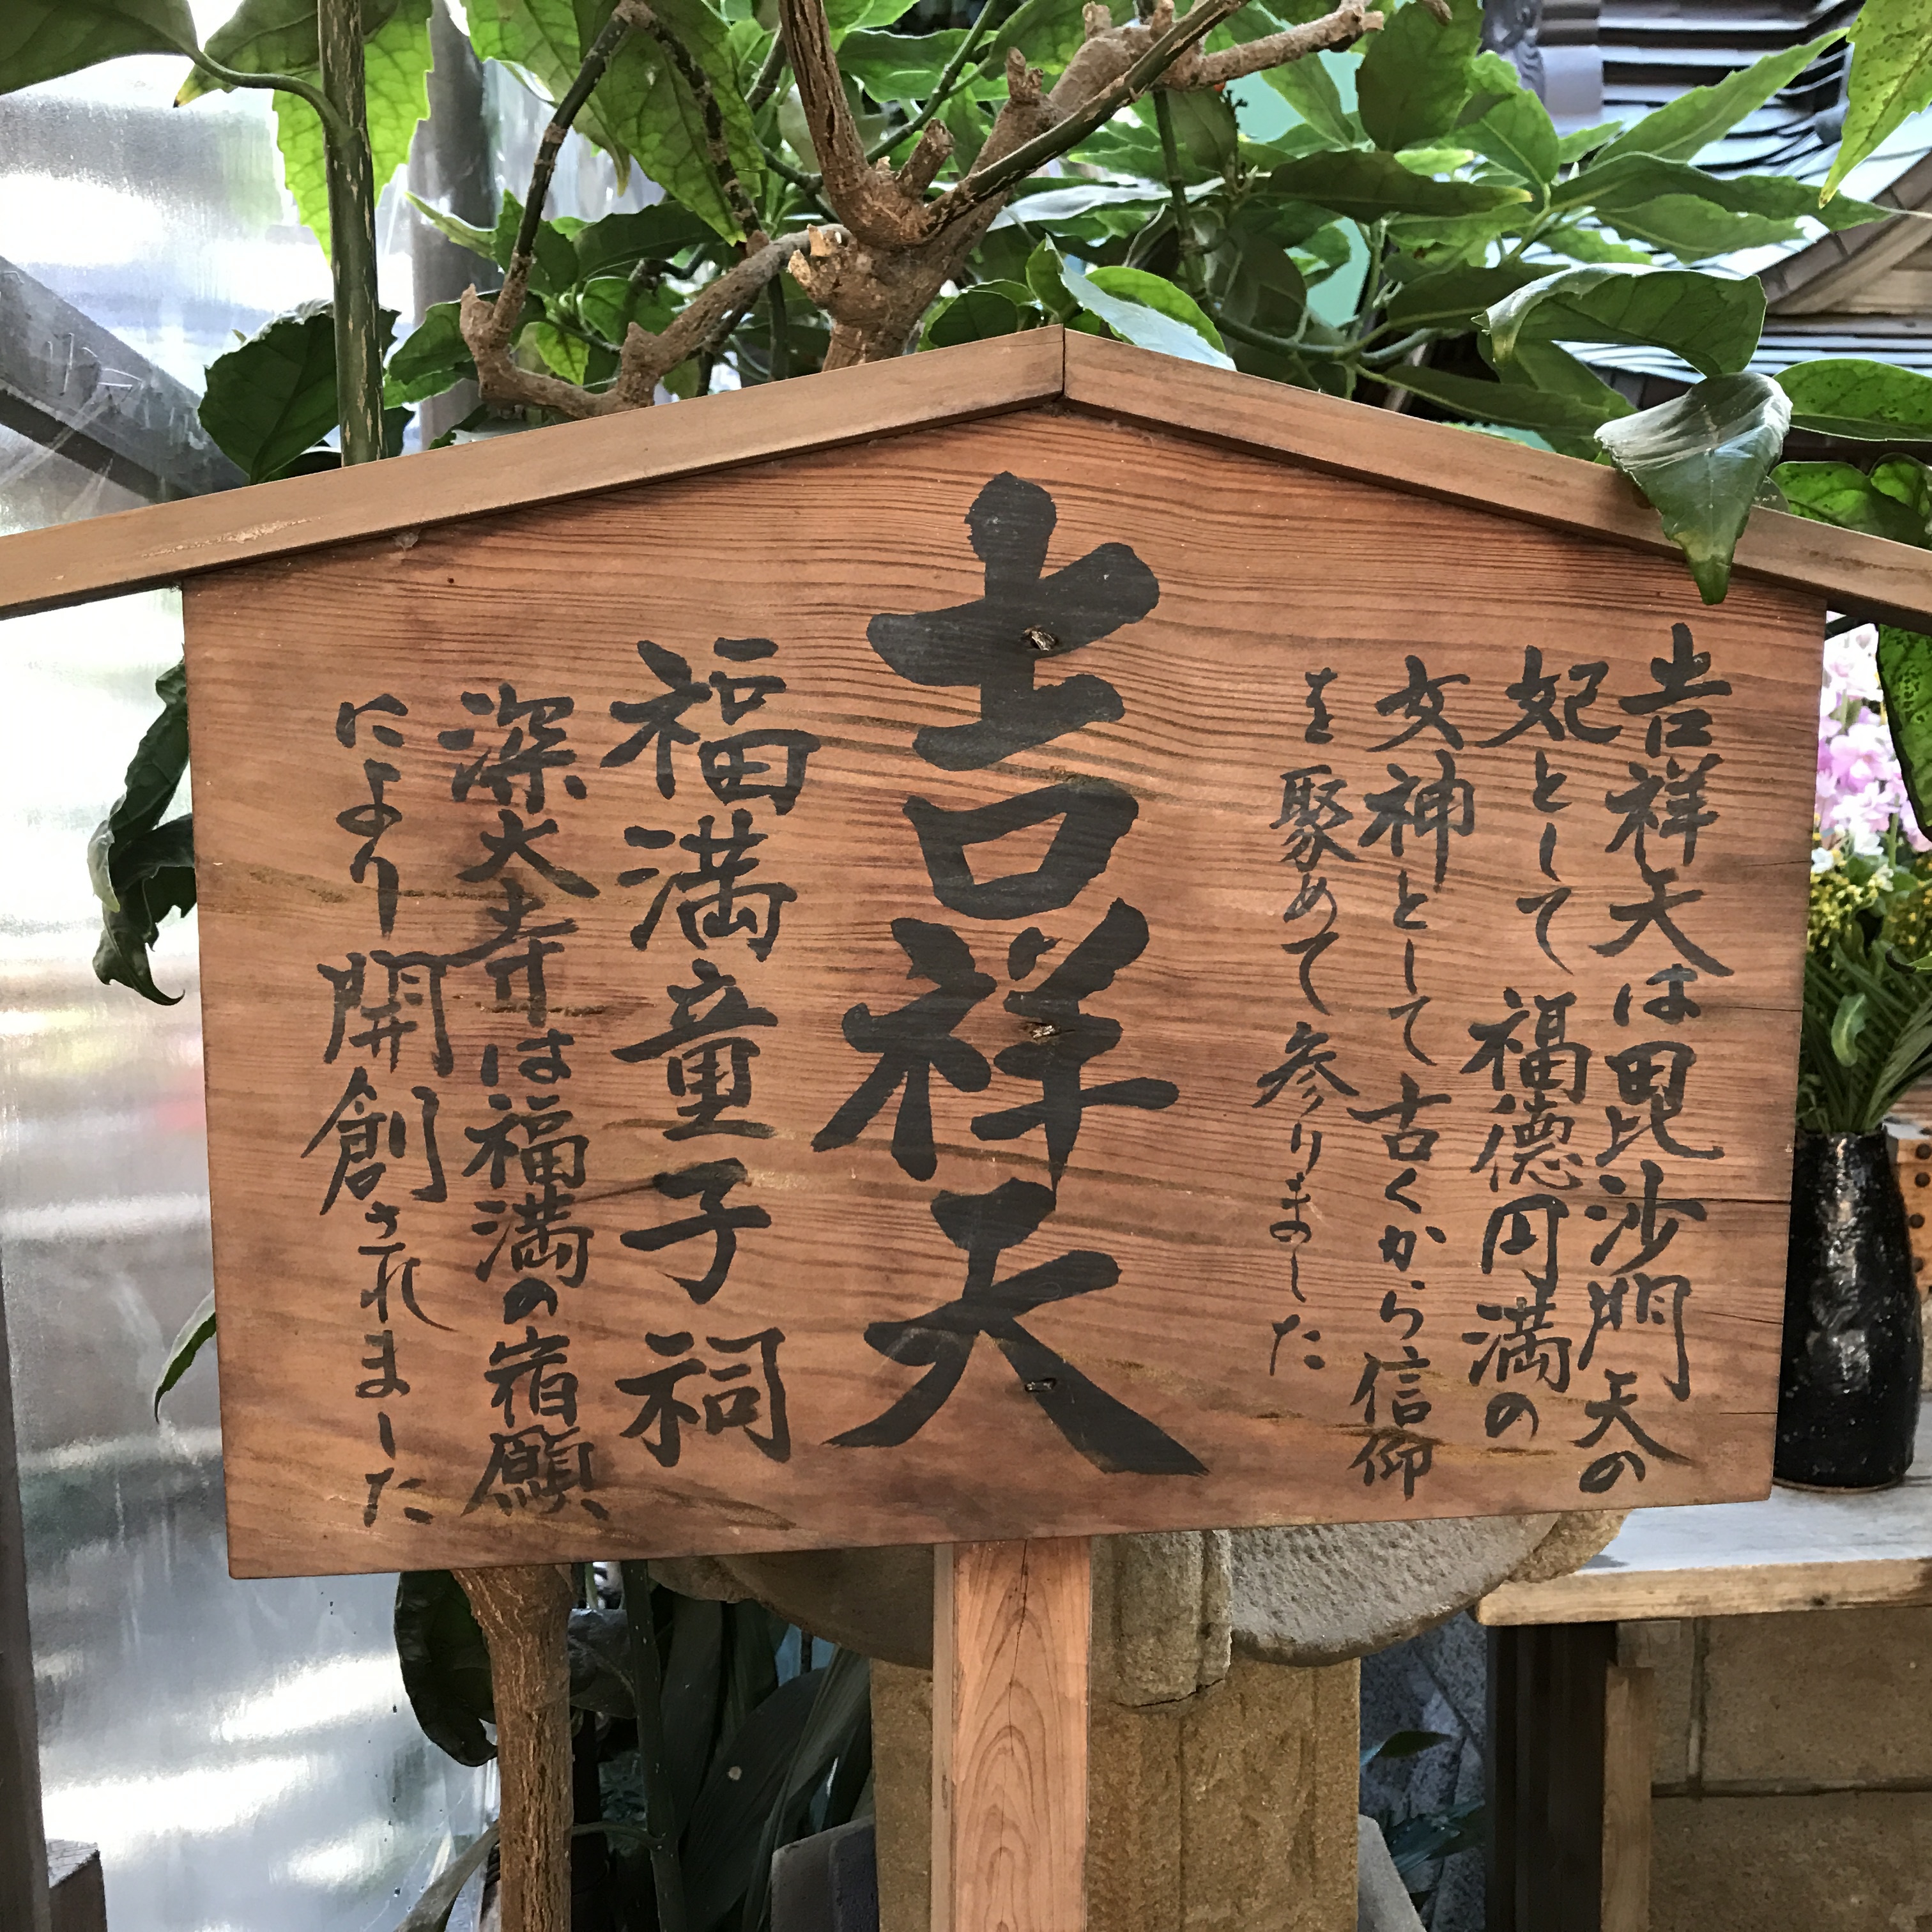 吉祥天は毘沙門天の
妃として福徳円満の
女神として古くから信仰
を聚めて参りました
吉祥天
福満童子祠
深大寺は福満の宿願
により開創されました